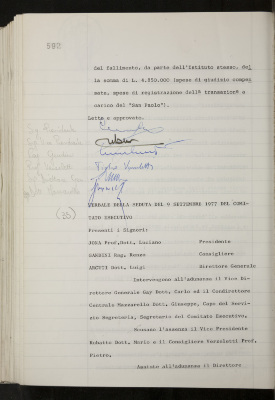 982
dal fallimento, da parte dell'Istituto stesso, del
la somma di L. 4.850.000 (spese di giudizio compen
sate, spese di registrazione della transazione a
carico del "San Paolo").
Letto e approvato.
VERBALE DELLA SEDUTA DEL 9 SETTEMBRE 1977 DEL COMI-
TATO ESECUTIVO
Presenti i Signori:
JONA Prof. Dott. Luciano Presidente
GANDINI Rag. Renzo Consigliere
ARCUTI Dott. Luigi Direttore Generale
Intervengono all'adunanza il Vice Di-
rettore Generale Gay Dott. Carlo ed il Condirettore
Centrale Dott. Giuseppe, Capo del Servi-
zio Segreteria, Segretario del Comitato Esecutivo.
l'assenza il Vice Presidente
Dott. Mario e il Consigliere Prof.
Pietro.
Assiste all'adunanza il Direttore